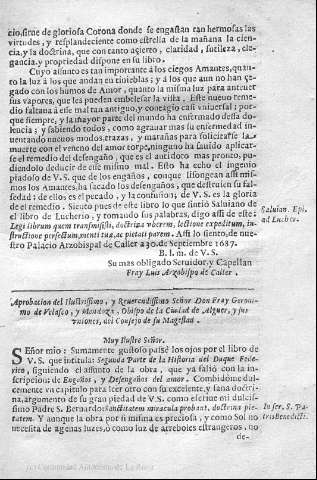 cio, sirve de gloriosa Corona donde se engastan tan hermosas las
virtudes, y resplandeciente como estrella de la mañana la cien-
cia, y la doctrina, que con tanto acierto, claridad, sutileza, ele-
gancia, y propriedad dispone en su libro.
Cuyo assunto es tan importante á los ciegos Amantes, quan-
to la luz á los que andan en tinieblas; y á los que aun no han ce-
gado con los humos de Amor, quanto la misma luz para antever
sus vapores, que les pueden embelesar la vista. Este nuevo reme-
dio faltava á esse mal tan antiguo, y contagio casi universal; por
que siempre, y la mayor parte del mundo ha enfermado desta do-
lencia; y sabiendo todos, como agravar mas su enfermedad in-
ventando nuevos modos, trazas, y marañas para solicitarse la
muerte con el veneno del amor torpe, ninguno ha savido aplicar-
se el remedio del desengaño, que es el antidoto mas pronto, pu-
diendolo deducir de este mismo mal. Esto ha echo el ingenio
piadoso de V.S. que de los engaños, conque lisongean assi mis-
mos los Amantes, ha sacado los desengaños, que destruien su fal-
sedad: de ellos es el pecado, y la confusion; de V.S. es la gloria
de el remedio. Siento pues de este libro lo que sintió Salviano de
el libro de Lucherio, y tomando sus palabras, digo assi de este:
Salvian. Epi.
ad Lucher.
Legi librum quem transmisisti, doctrina uberem, lectione expeditum, in-
structione perfectum, menti tuæ, ac pietati parem. Assi lo siento, de nues-
tro Palacio Arzobispal de Caller a 30. de Septiembre 1687.
B. l. m. de V. S.
Su mas obligado Servidor, y Capellan
Fray Luis Arzobispo de Caller.
Aprobacion del Ilustrissimo, y Reverendissimo Señor Don Fray Geroni-
mo de Velasco, y Mendoza. Obispo de la Ciudad de Alguer, y sus
uniones, del Consejo de su Magestad.
Muy Ilustre Señor.
SEñor mio: Sumamente gustoso passé los ojos por el libro de
V.S. que intitula: Segunda Parte de la Historia del Duque Fede-
rico, siguiendo el assunto de la obra, que ya salió con la in-
scripcion de Engaños, y Desengaños del amor. Combidóme dul-
cemente un capitulo para leer otro con su excelente, y sana doctri-
na, argumento de su gran piedad de V.S. como escrive mi dulcis-
simo Padre S. Bernardo: Sanctitatem miracula probant, doctrina pie-
tatem. Y aunque la obra por si misma es preciosa, y como Sol no
necesita de agenas luzes, ó como luz de arreboles estrangeros, no
In ser. S. Pa-
tris Benedicti.
de-